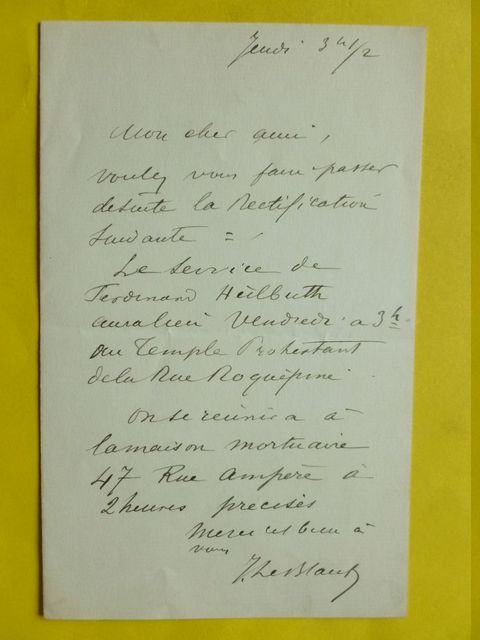 Jeudi 3 h 1/2
Mon cher ami,
voulez vous faire passer
desuite la Rectification
suivante =
Le Service de
Ferdinand Heilbuth
aura lieu Vendredi à 3 h
au Temple Protestant
de la Rue Roquépine
On se réunira à
la maison mortuaire
47 Rue Ampère à
2 heures precises
Merci et bien à
vous
J. Le Blant